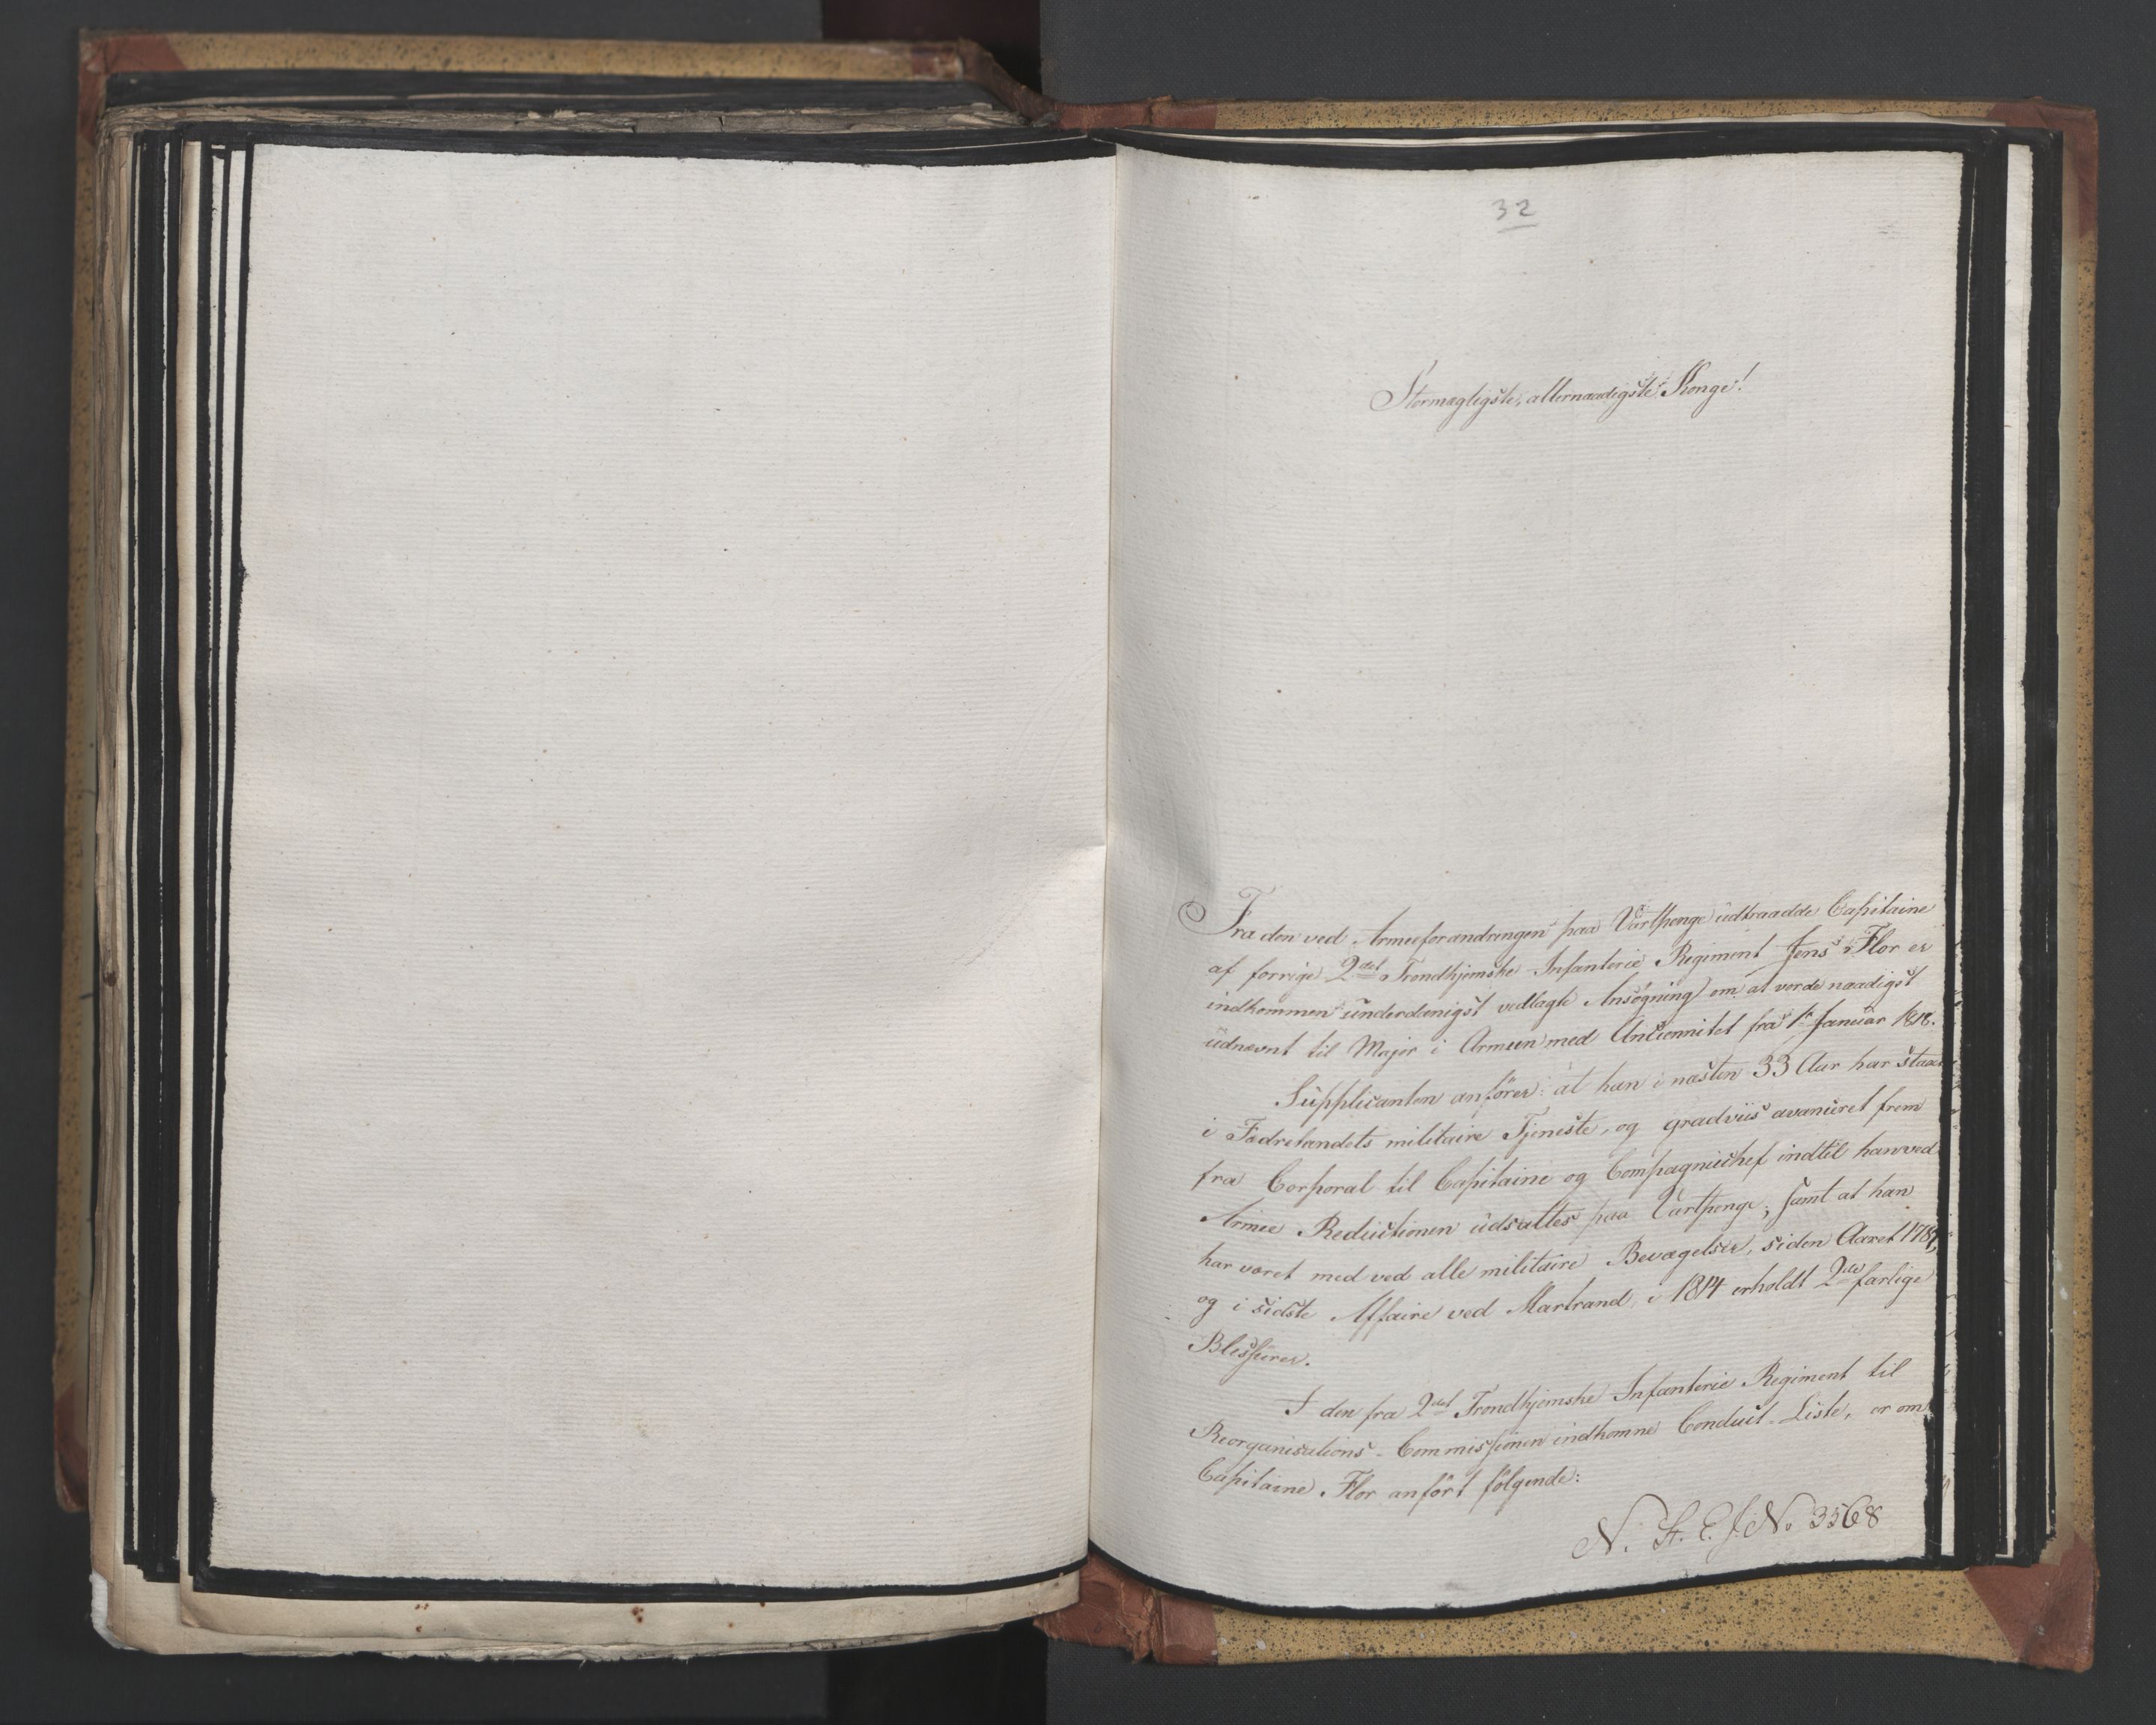 32
Stormægtigste, allernaadigste Konge!
Fra den ved Armeeforandringen paa Vartpenge udtraadde Capitaine
af forrige 2det Trondhjemske Infanterie Regiment Jens Flor er
indkommen underdanigst vedlagte Ansøgning om at vorde naadigst
udnævnt til Major i Armeen med Anciennitet fra 1ste Januar 1818.
Supplicanten anfører: at han i næsten 33 Aar har staaet
i Fædrelandets militaire Tjeneste, og gradviis avanceret frem
fra Corporal til Capitaine og Compagniechef indtil han ved
Armee Reductionen udsattes paa Vartpenge; samt at han
har været med ved alle militaire Bevægelser, siden Aaret 1789,
og i sidste Affaire ved Martrand i 1814 erholdt 2de farlige
Blessurer.
I den fra 2det Trondhjemske Infanterie Regiment til
Reorganisations-Commissionen indkomne Conduit-Liste, er om
Capitaine Flor anført følgende:
N. St. E. J. No 3568